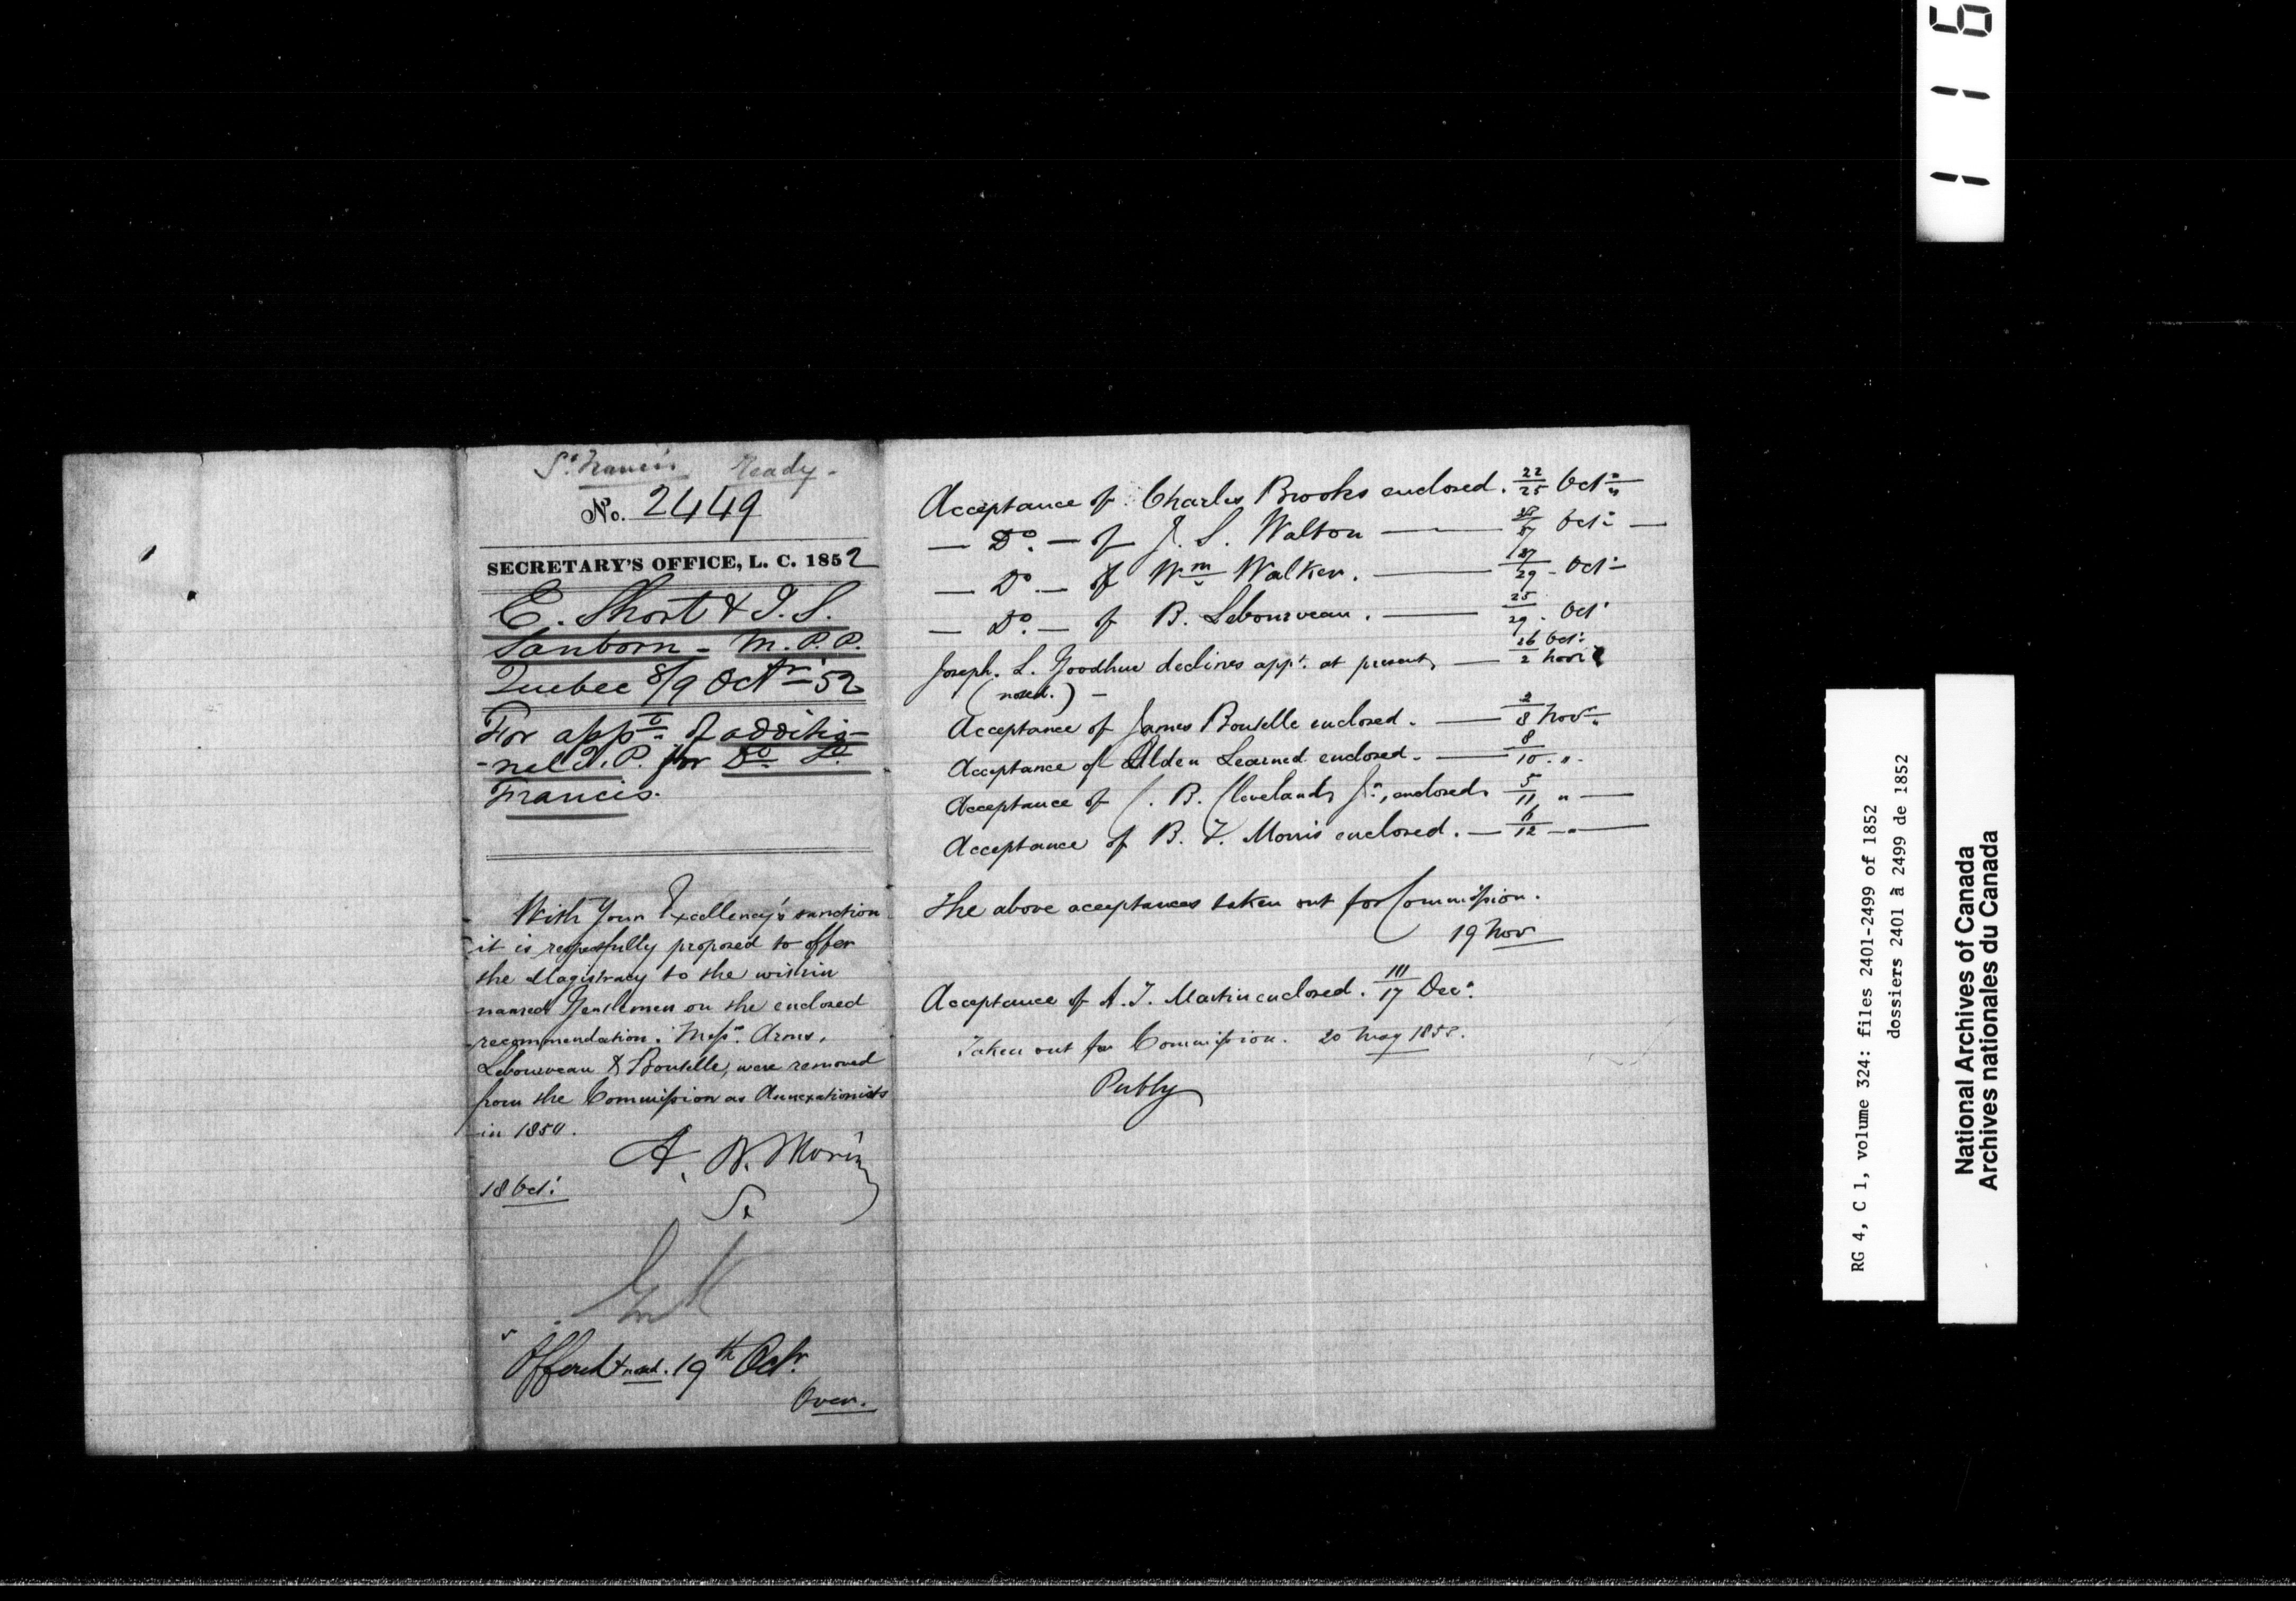 St. Francis Ready.
No. 2449
SECRETARY'S OFFICE, L. C. 1852
E. Short & J. S.
Sanborn - M.P.P.
Quebec 8/9 Octr 52
For appt. of additio-
-nal J.P. for Do St.
Francis.
With Your Excellency's sanction
it is respectfully proposed to offer
the Magistracy to the within
named Gentlemen on the enclosed
recommendation. Messrs. Arms,
Lebourveau & Boutelle, were removed
from the Commission as Annexationists
in 1850.
A. N. Morin
Se
18 Oct.
Offered & noted. 19th Octr.
Over.
Acceptance of Charles Brooks enclosed. 22/25 Oct.
— Do. — of J. S. Walton — Oct. —
— Do. — of Wm Walker. — 27/29 - Oct.
— Do. — of B. Lebourveau. — 25/29. Oct.
Joseph. L. Goodhue declines appt. at present, — 26 Oct. / 2 Nov.
(noted.) -
Acceptance of James Boutelle enclosed. — 2/8 Nov.
Acceptance of Alden Learned enclosed. — 8/10. ".
Acceptance of C. B. Cleveland, Jr., enclosed, 5/11 " —
Acceptance of B. F. Morris enclosed. — 6/12 - " —
The above acceptances taken out for Commission.
19 Nov
Acceptance of A. T. Martin enclosed. 17 Dec.
Taken out for Commission. 20 May 1853.
Putby
116
RG 4, C 1, volume 324: files 2401-2499 of 1852
dossiers 2401 à 2499 de 1852
National Archives of Canada
Archives nationales du Canada